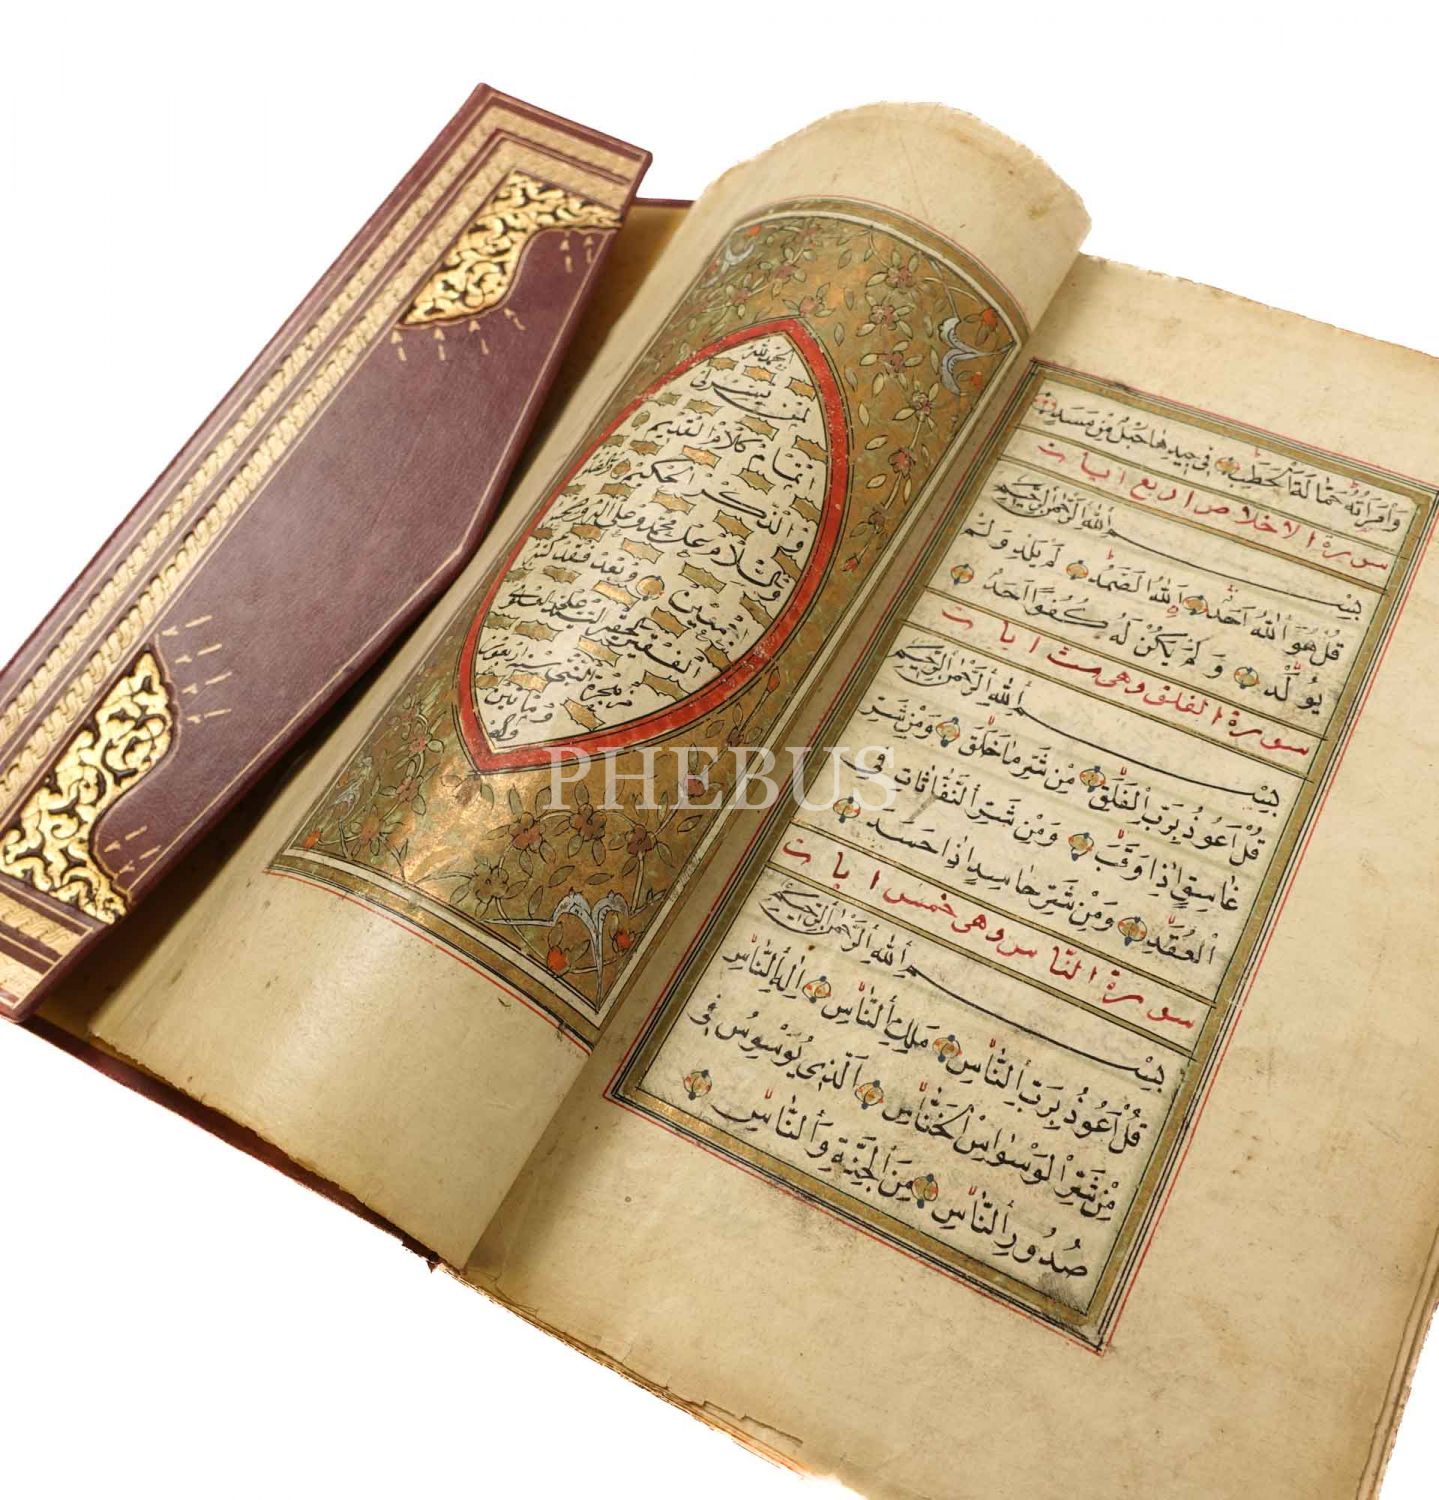 وَامْرَأَتُهُ حَمَّالَةَ الْحَطَبِ فِي جِيدِهَا حَبْلٌ مِنْ مَسَدٍ
سورة الاخلاص اربع ايات
بِسْمِ اللهِ الرَّحْمٰنِ الرَّحِيمِ
قُلْ هُوَ اللهُ اَحَدٌ اَللهُ الصَّمَدُ لَمْ يَلِدْ وَلَمْ
يُولَدْ وَلَمْ يَكُنْ لَهُ كُفُوًا اَحَدٌ
سورة الفلق وهى خمس ايات
بِسْمِ اللهِ الرَّحْمٰنِ الرَّحِيمِ
قُلْ اَعُوذُ بِرَبِّ الْفَلَقِ مِنْ شَرِّ مَا خَلَقَ وَمِنْ شَرِّ
غَاسِقٍ اِذَا وَقَبَ وَمِنْ شَرِّ النَّفَّاثَاتِ فِي
الْعُقَدِ وَمِنْ شَرِّ حَاسِدٍ اِذَا حَسَدَ
سورة الناس وهى خمس ايات
بِسْمِ اللهِ الرَّحْمٰنِ الرَّحِيمِ
قُلْ اَعُوذُ بِرَبِّ النَّاسِ مَلِكِ النَّاسِ اِلٰهِ النَّاسِ
مِنْ شَرِّ الْوَسْوَاسِ الْخَنَّاسِ اَلَّذِي يُوَسْوِسُ فِي
صُدُورِ النَّاسِ مِنَ الْجِنَّةِ وَالنَّاسِ
الحمد لله
لمن يسرنى
اتمام كلام القديم
والذكر الحكيم
والسلام على محمد وعلى اله وصحبه
اجمعين وبعد فقد كتبه
الفقير الحقير
من هجرة النبى سنة
ومأتين
والف
PHEBUS